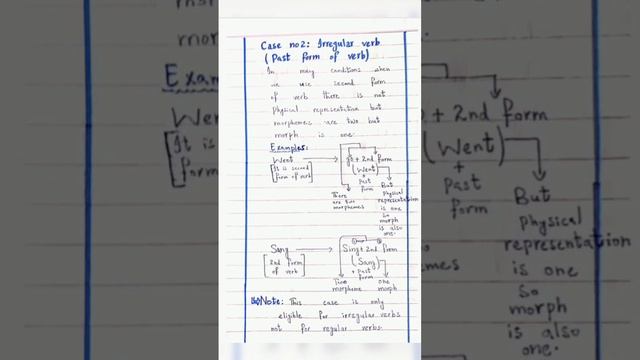 Case no2: Irregular verb
(Past form of verb)
In many conditions when
we use second form
of verb there is not
physical representation but
morphemes are two but
morph is one.
Examples:
Went → go + 2nd form
[It is second form of verb]
(Went)
+
past
form
There are two morphemes
But physical representation is one so morph is also one.
Sang → Sing + 2nd form
[2nd form of verb]
(Sang)
+ past
form
Two morpheme
one morph
Note: This case is only
eligible for irregular verbs
not for regular verbs.
Exam
Went
[It is
form
+ 2nd form
(Went)
+
past
form
But
physical
representation
is one
so
morph
is also
one.